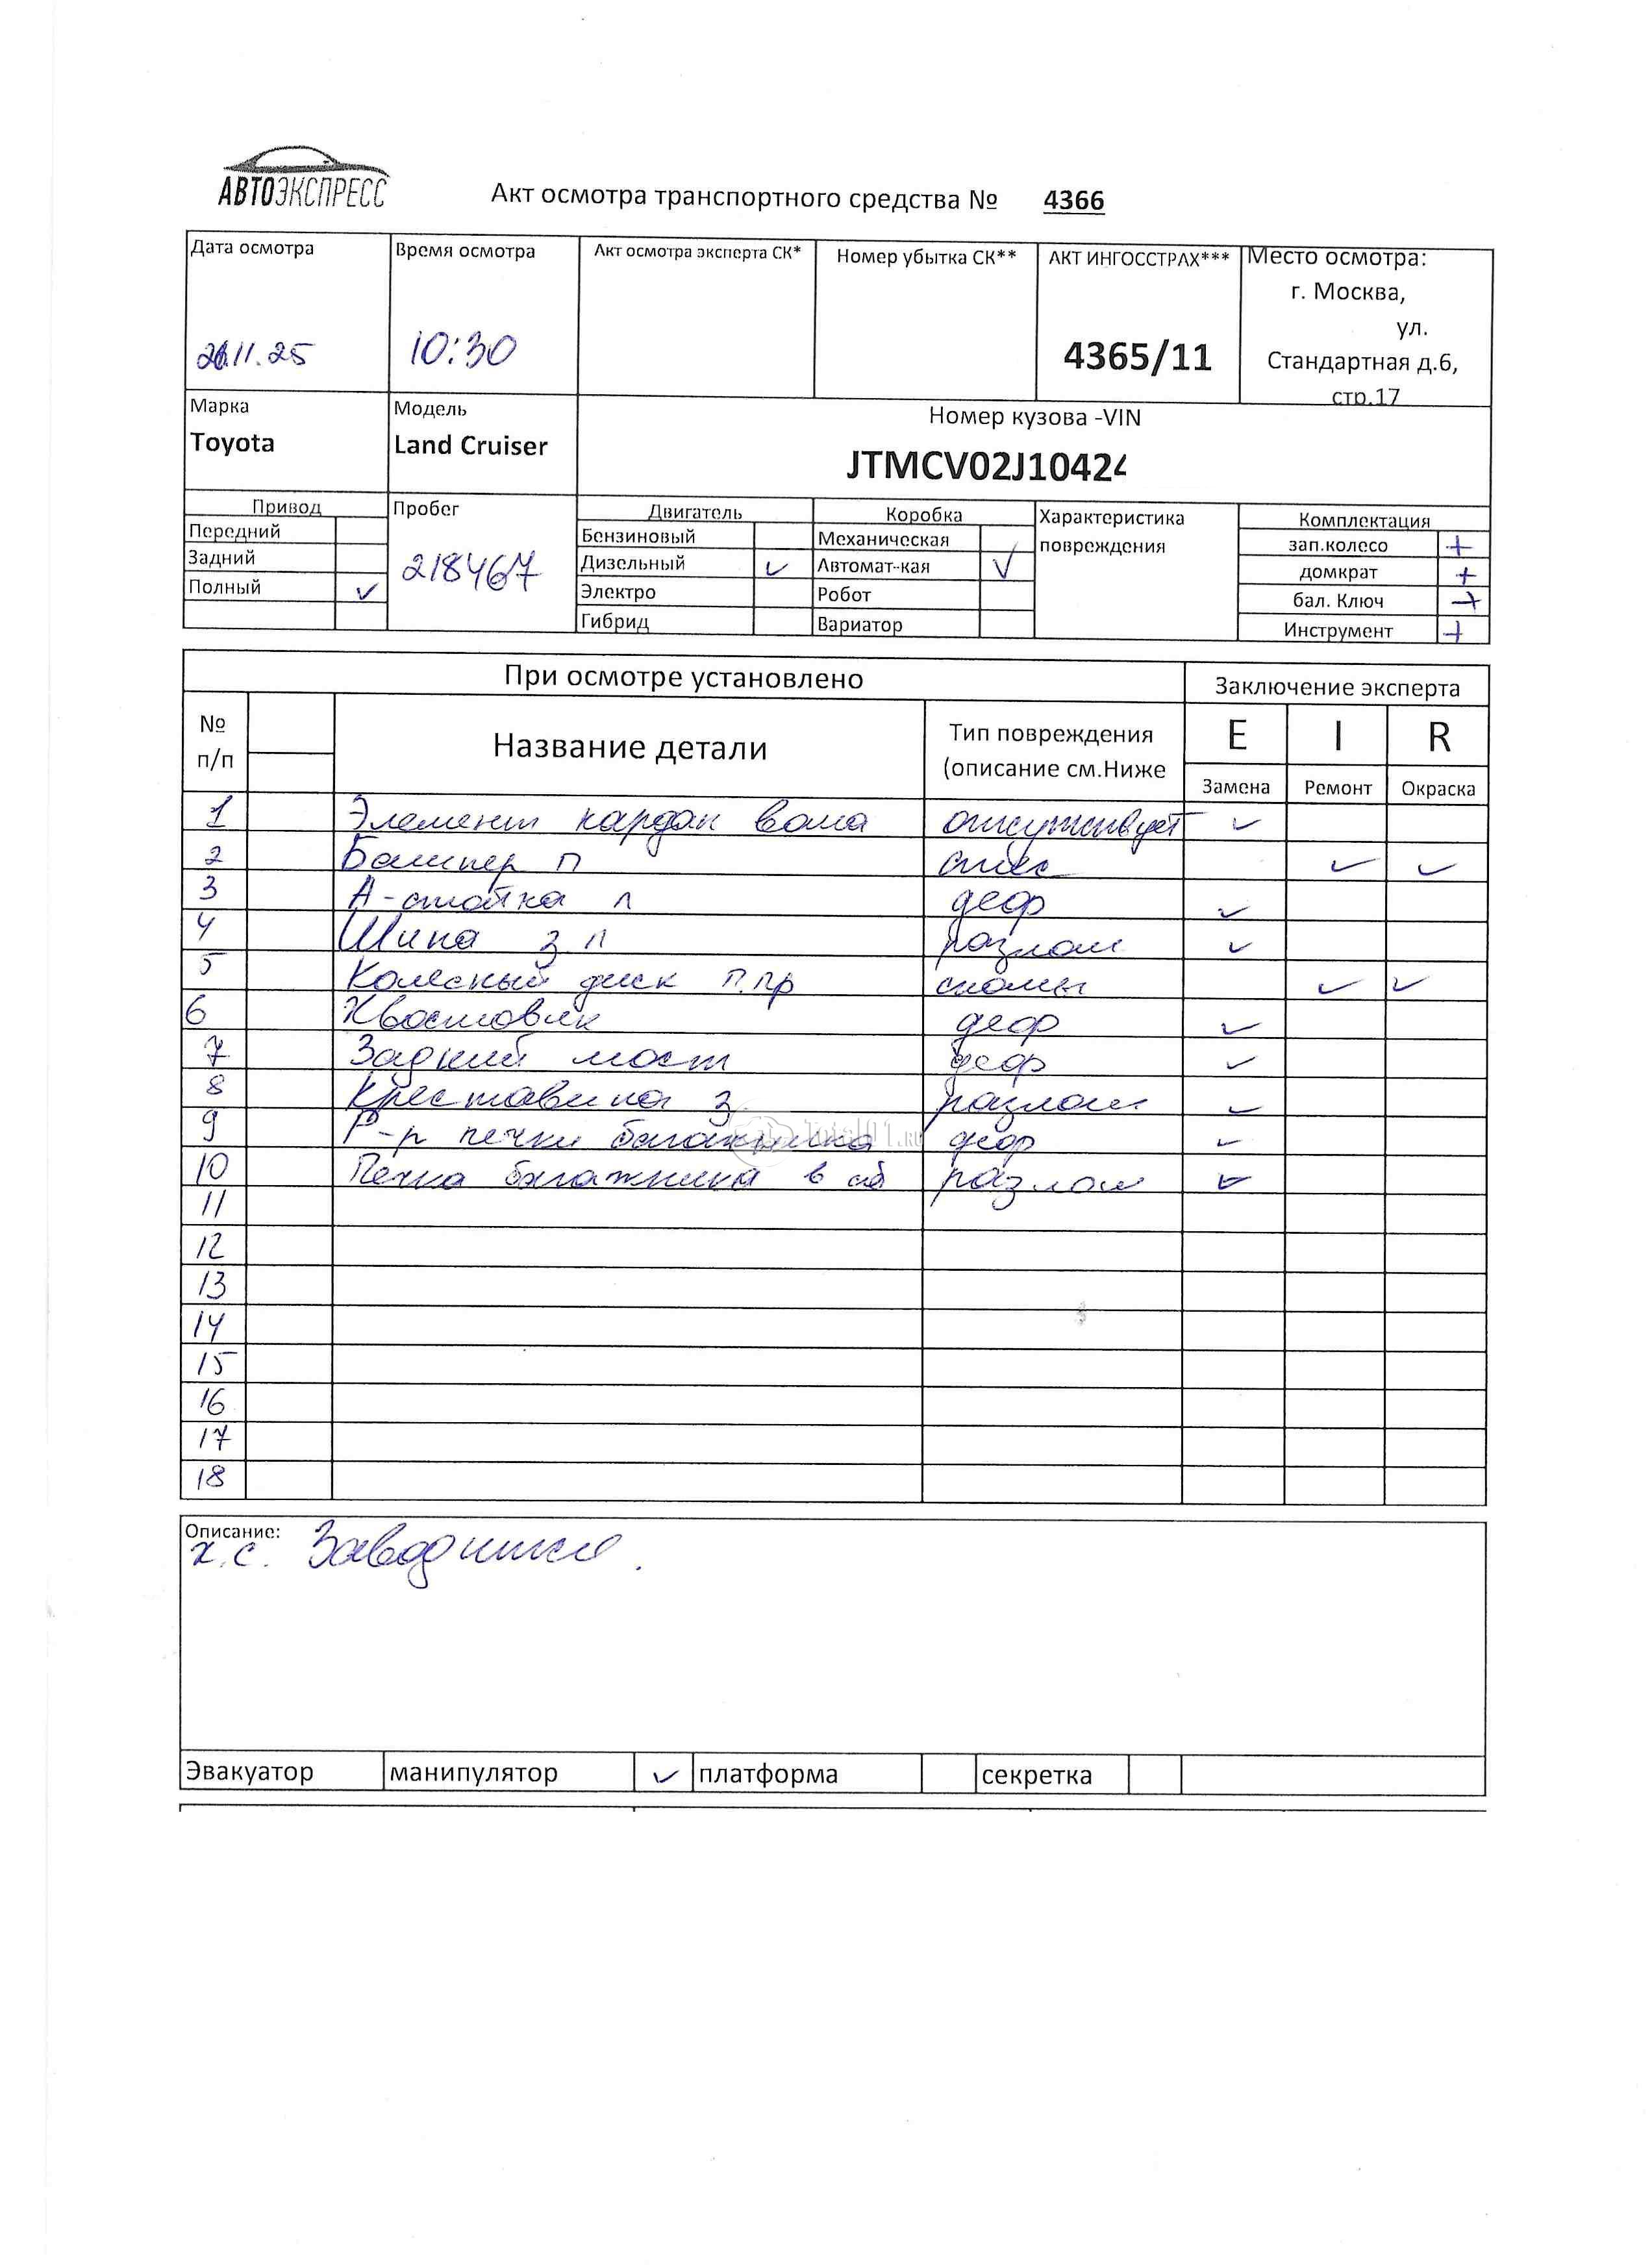 АВТОЭКСПРЕСС
Акт осмотра транспортного средства № 4366
Дата осмотра Время осмотра Акт осмотра эксперта СК* Номер убытка СК** АКТ ИНГОССТРАХ*** Место осмотра:
г. Москва,
ул.
11.25 10:30 4365/11 Стандартная д.6,
стр.17
Марка Модель Номер кузова -VIN
Toyota Land Cruiser JTMCV02J10424
Привод Пробег Двигатель Коробка Характеристика повреждения Комплектация
Передний Бензиновый Механическая зап.колесо +
Задний 218467 Дизельный ✓ Автомат-кая ✓ домкрат +
Полный ✓ Электро Робот бал. Ключ +
Гибрид Вариатор Инструмент +
При осмотре установлено Заключение эксперта
№ п/п Название детали Тип повреждения (описание см.Ниже E I R
Замена Ремонт Окраска
1 Элемент кардан вала отсутствует ✓
2 Бампер п ✓ ✓
3 А-стойка л деф ✓
4 Шина з л разлом ✓
5 Колесный диск п.пр сколы ✓ ✓
6 Хвостовик деф ✓
7 Задний мост деф ✓
8 Крестовина з разлом ✓
9 Р-р печки багажника деф ✓
10 Печка багажника в сб разлом ✓
11
12
13
14
15
16
17
18
Total01.RU
Описание:
х.с. Заводится.
Эвакуатор манипулятор ✓ платформа секретка